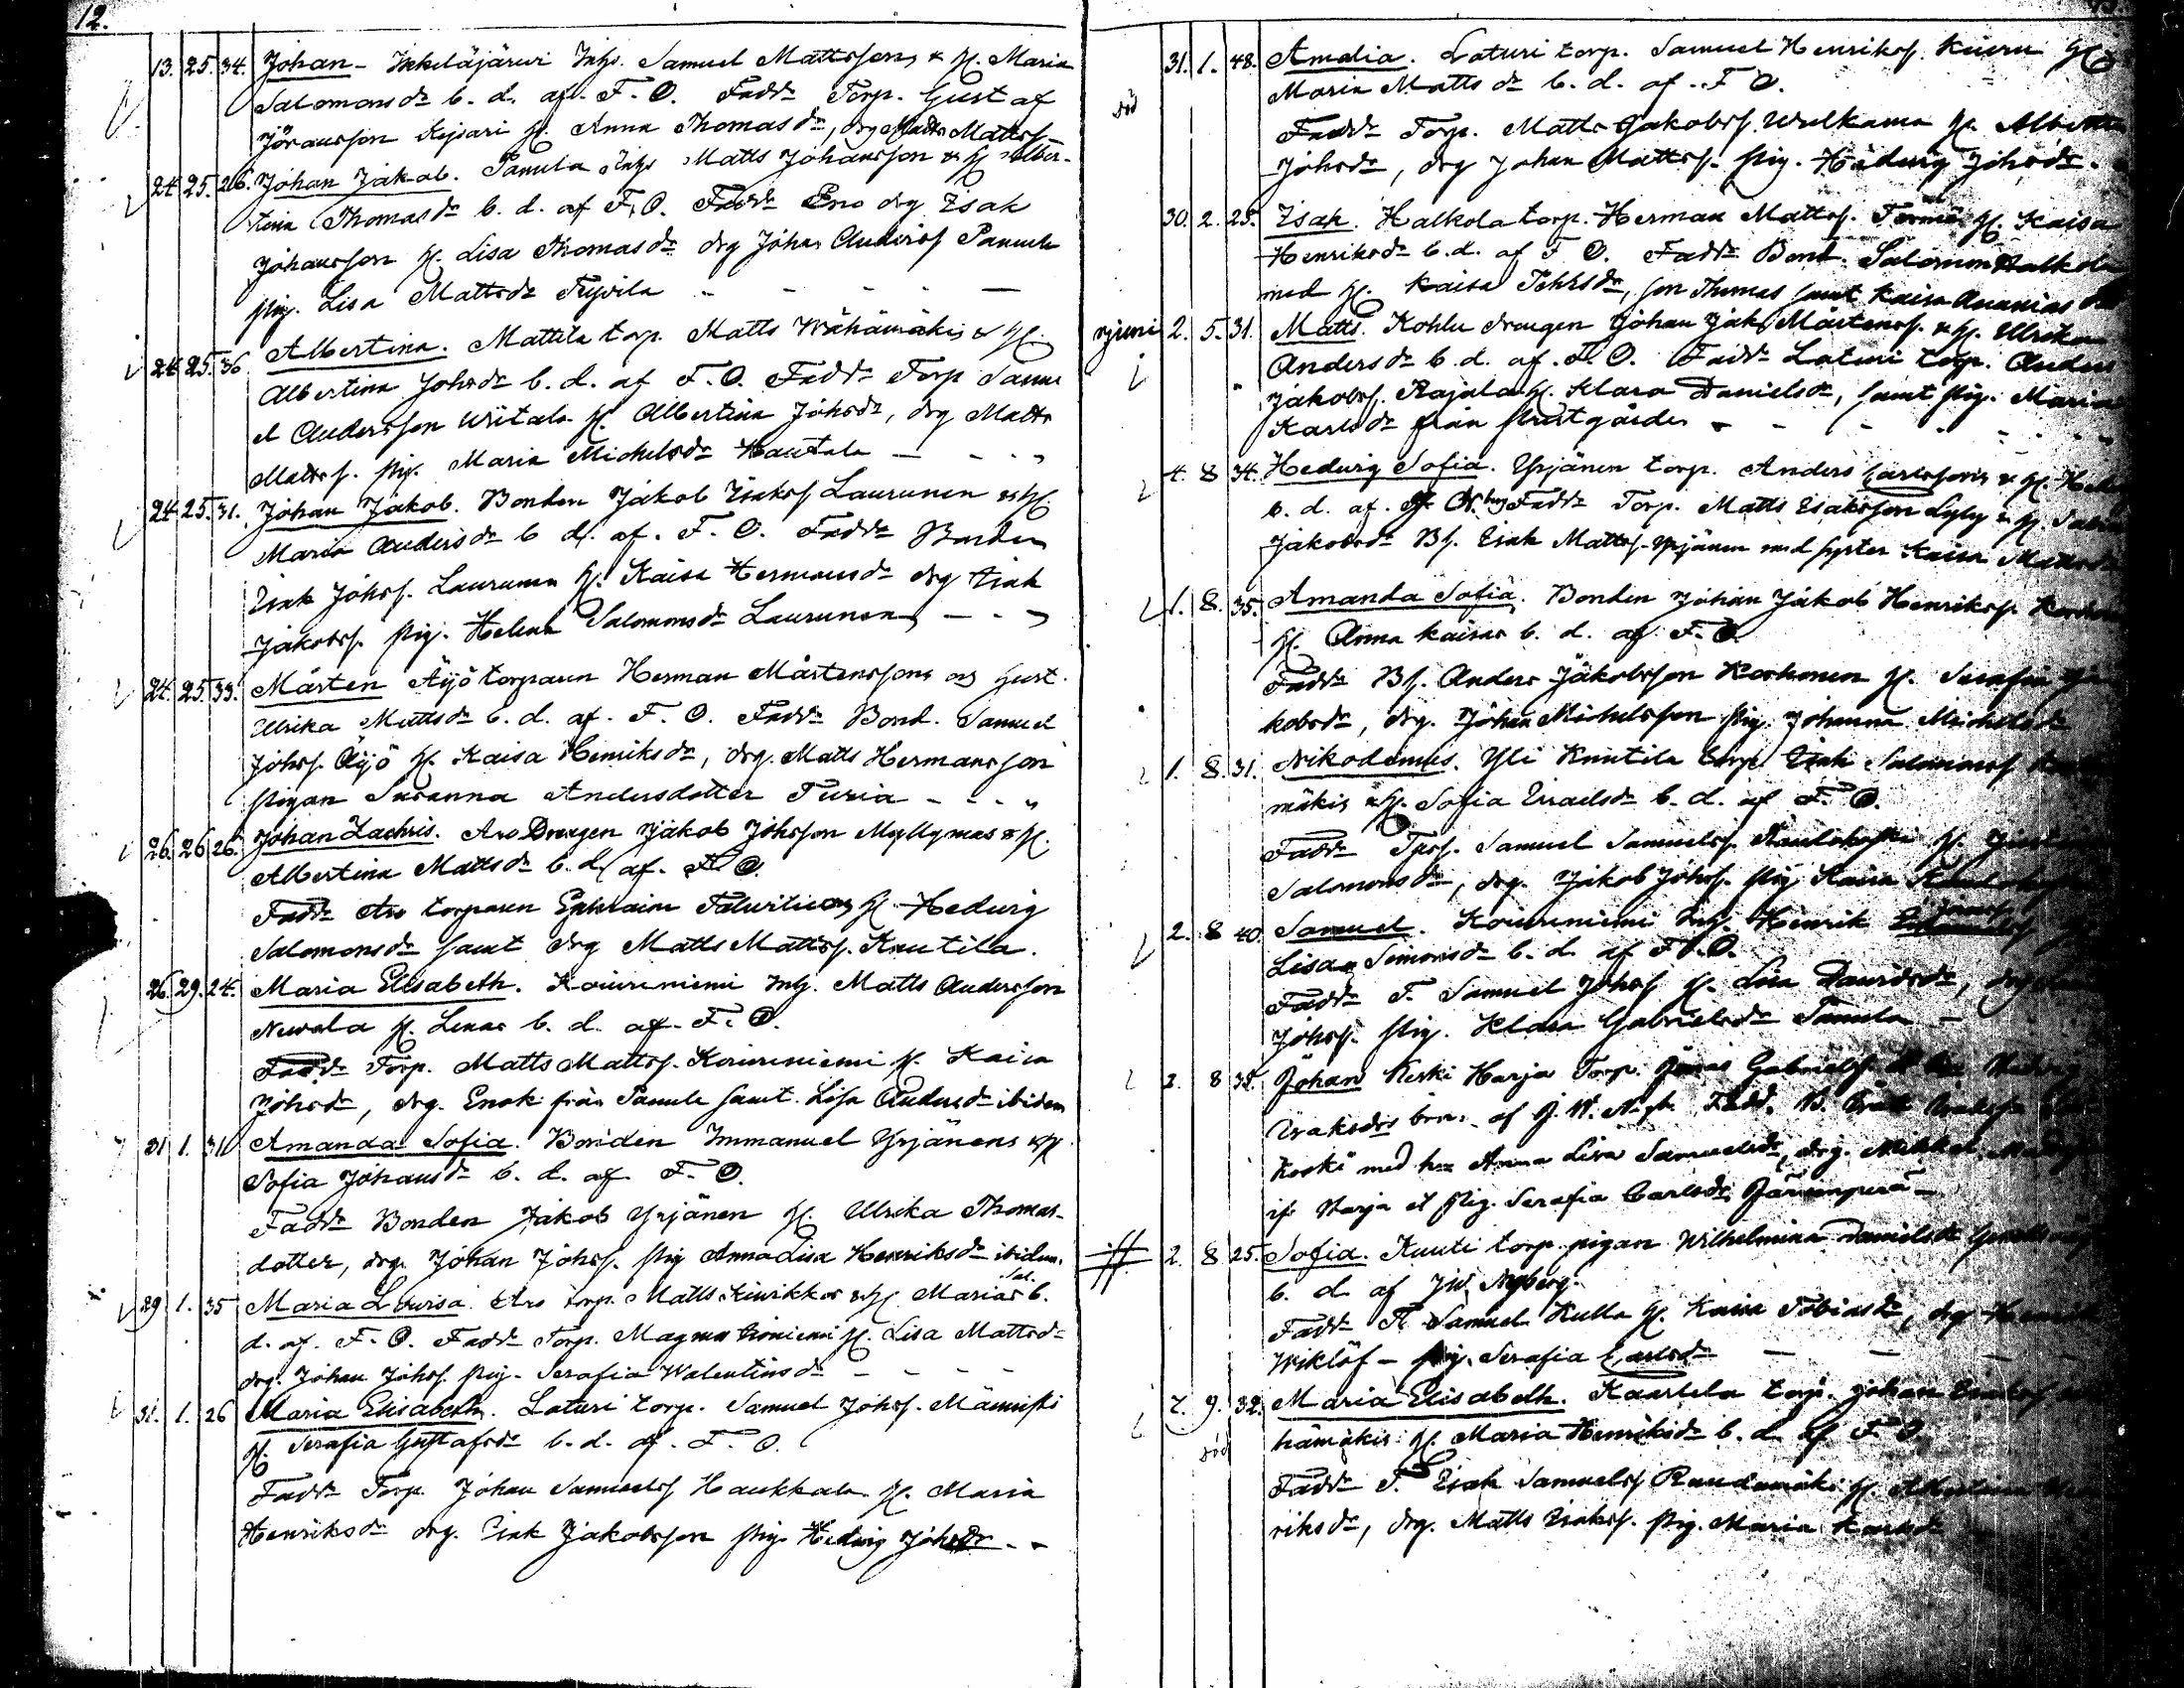 12.
13. 25. 34. Johan - Inkeläjärwi Inhs. Samuel Mattssons & H. Maria
Salomonsdr b. d. af. F. O. Faddr Torp. Gustaf
Jöransson Kejsari H. Anna Thomasdr, drg Matts Mattss.
24. 25. 26. Johan Jakob. Panula Inhs Matts Johansson & H. Alber-
tina Thomasdr b. d. af F. O. Faddr Eno drg Isak
Johansson H. Lisa Thomasdr drg Johan Anderss Panula
pig. Lisa Mattsdr Tyrila - - - -
24. 25. 36 Albertina. Mattila torp. Matts Wähämäkis & H.
Albertina Johsdr b. d. af F. O. Faddr Torp Samu
el Andersson Wiitala H. Albertina Johsdr, drg Matts
Mattss. pig. Maria Michelsdr Hautala - - -
24. 25. 31. Johan Jakob. Bonden Jakob Isakss Laurunen & H.
Maria Andersdr b. d. af. F. O. Faddr Bonden
Isak Johss. Laurunen H. Kaisa Hermansdr drg Isak
Jakobss. pig. Helena Salomonsdr Laurunen - - -
24. 25. 33. Mårten Äijö torparen Herman Mårtenssons og Hust.
Ulrika Mattsdr b. d. af. F. O. Faddr Bond. Samuel
Johss. Äijö H. Kaisa Henriksdr, drg. Matts Hermansson
pigan Susanna Andersdotter Turja - - -
26. 26 26. Johan Zachris. Aro Drengen Jakob Johsson Myllymas & H.
Albertina Mattsdr b. d. af. F. O.
Faddr Aro torparen Ephraim H. Hedwig
Salomonsdr samt drg Matts Mattss. Knutila.
26. 29. 24. Maria Elisabeth. Koiwuniemi Inh. Matts Andersson
Newala H. Lenas b. d. af. F. O.
Faddr Torp. Matts Mattss. Koiwuniemi H. Kaisa
Johsdr, drg. Enok från Panula samt Lisa Andersdr ibidem
31 1. 31 Amanda Sofia. Bonden Immanuel Yrjänens & H
Sofia Johansdr b. d. af F. O.
Faddr Bonden Jakob Yrjänen H. Ulrika Thomas-
dotter, drg. Johan Johss. pig Anna Lisa Henriksdr ibidem.
29 1. 35 Maria Lowisa. Aro torp. Matts Kinikkas & H. Marias Sal. b.
d. af. F. O. Faddr Torp. Magnus H. Lisa Mattsdr
drg. Johan Johss. pig. Serafia Walentinsdr - - - -
31. 1. 26 Maria Elisabeth. Laturi torp. Samuel Johss. Männistö
H. Serafia Gustafsdr b. d. af. F. O.
Faddr Torp. Johan Samuelss Haukkala H. Maria
Henriksdr drg. Isak Jakobsson pig. Hedwig Johsdr - -
31. 1. 48. Amalia. Laturi torp. Samuel Henrikss. Kueru H.
död Maria Mattsdr b. d. af. F O.
Faddr Torp. Matts Jakobss. Wulkama H. Albertina
Johsdr, drg Johan Mattss. pig. Hedwig Johsdr.
30. 2. 25. Isak. Halkola torp. Herman Mattss. H. Kaisa
Henriksdr b. d. af F O. Faddr Bond. Salomon Halkola
med H. Kaisa Pehrsdr, son Thomas samt Kaisa Ananias
2. 5. 31. Matts. Kohlu drengen Johan Jak. Mårtenss. & H. Ulrika
Andersdr b. d. af. F. O. Faddr Laturi torp. Anders
Jakobss. Rajala H. Klara Danielsdr, samt pig. Maria
Karlsdr från prestgården - - - -
4. 8 34. Hedwig Sofia. Yrjänen torp. Anders Carlssons & H.
b. d. af. Faddr Torp. Matts Isaksson Lyly & H.
Jakobsdr Bs. Isak Mattss. Yrjänen med syster Kaisa Mattsdr
1. 8. 35. Amanda Sofia. Bonden Johan Jakob Henrikss.
H. Anna Kaisas b. d. af F. O.
Faddr Bs. Anders Jakobsson Korhonen H. Serafia Ja
kobsdr, drg. Johan Michelsson pig. Johanna Michelsdr
1. 8. 31. Nikodemus. Yli Knutila torp. Isak Salomonss
mäkis & H. Sofia Israelsdr b. d. af F. O.
Faddr Tpss. Samuel Samuelss. H.
Salomonsdr, drg. Jakob Johss. pig Kaisa
2. 8 40. Samuel. Koiwuniemi Inh. Henrik
Lisas Simonsdr b. d. af F. O.
Faddr T. Samuel Johss H. Lisa Davidsdr, drg
Johss. pig. Klara Gabrielsdr Panula -
2. 8 38. Johan Keski Harja Torp. Jonas Gabrielss.
Isaksdrs af J. W. Faddr B. Isak
Koski med h. Anna Lisa Samuelsdr, drg. Mikkel
Harja et pig. Serafia Carlsdr -
2. 8 25. Sofia. Kuuti torp. pigan Wilhelmina Danielsdr
b. d. af JW. Nyberg.
Faddr T. Samuel Kulla H. Kaisa Tobiasdr, drg
Wiklöf - pig. Serafia Carlsdr - - -
7. 9. 32. Maria Elisabeth. Kaartela torp. Johan
död hämäkis H. Maria Henriksdr b. d. af F. O.
Faddr T. Isak Samuelss H. Albertina
riksdr, drg. Matts Isakss. pig. Maria Karlsdr